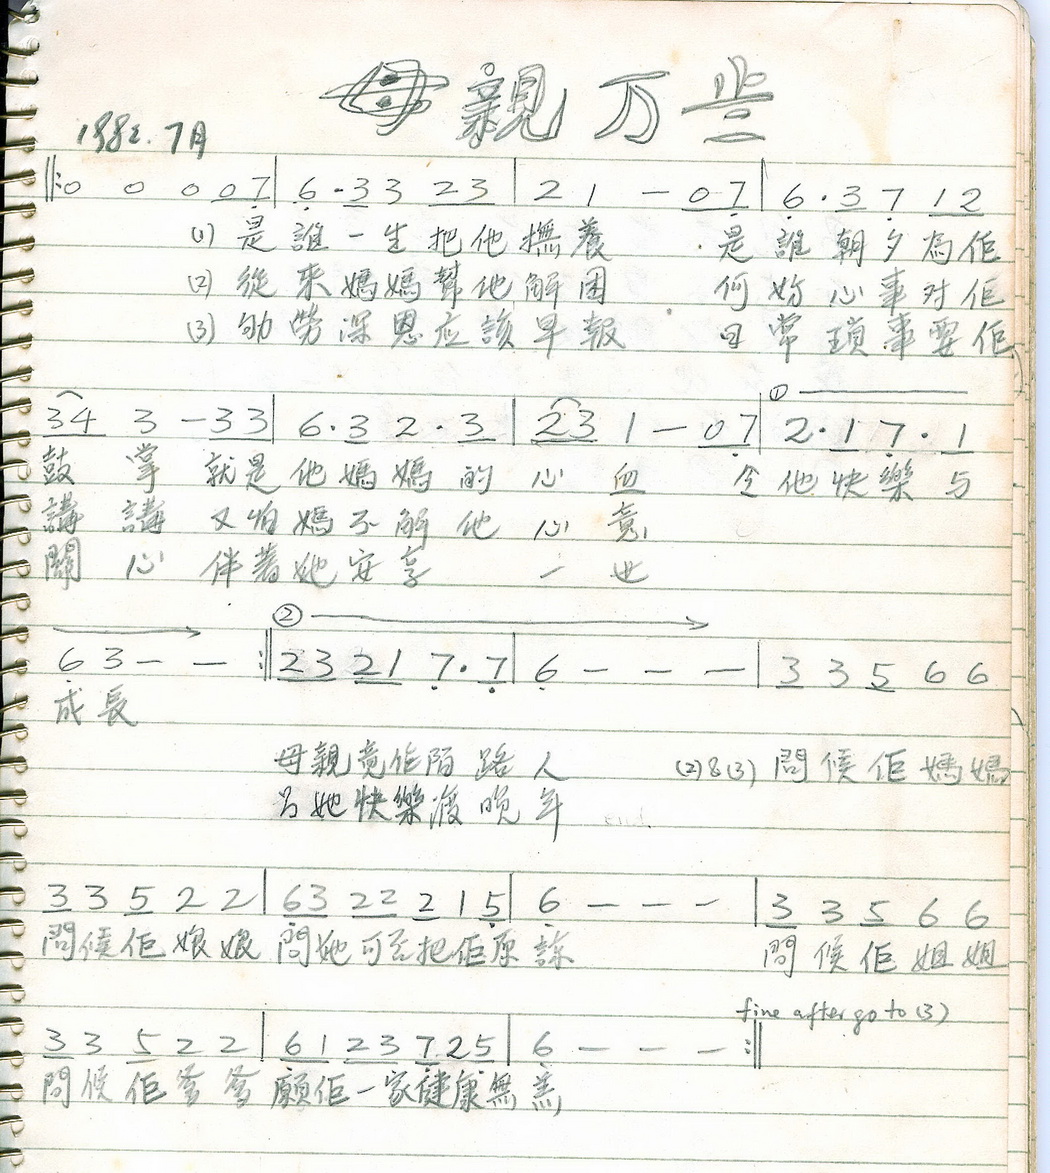 母親万岁
1982. 7月
‖: 0 0 0 07 | 6·33 23 | 2 1 — 07 | 6·37 12
(1) 是誰一生把他撫養 是誰朝夕為佢
(2) 從來媽媽幫他解困 何妨心事对佢
(3) 劬勞深恩应該早報 日常瑣事要佢
34 3 -33 | 6·3 2·3 | 23 1 — 07 | ① 2·1 7·1
鼓掌 就是他媽媽的心血 令他快樂与
講講 又怕媽不解他心意
關心 伴著她安享一世
6 3 — — :‖ ② 23 21 7·7 | 6 — — — | 3 3 5 6 6
成長
母親竟作陌路人 (2)&(3) 問候佢媽媽
与她快樂渡晚年 end
3 3 5 2 2 | 63 22 2 1 5 | 6 — — — | 3 3 5 6 6
問候佢娘娘 問她可否把佢原諒 問候佢姐姐
fine after go to (3)
3 3 5 2 2 | 61 23 7 25 | 6 — — — :‖
問候佢爹爹 願佢一家健康無恙